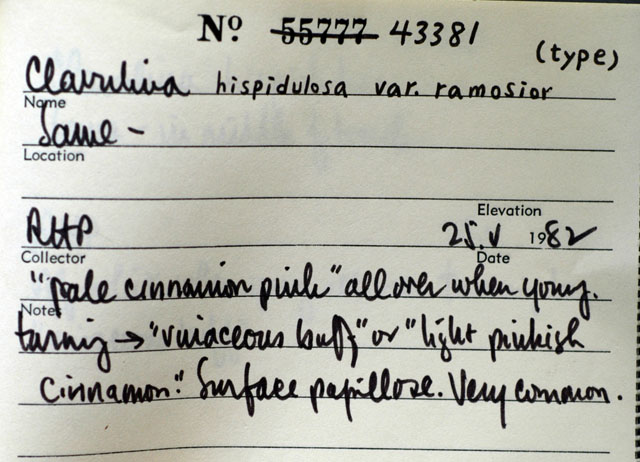 Nº 55777 43381
(type)
Clavulina hispidulosa var. ramosior
Name
Same -
Location
Elevation
RHP 25.V 1982
Collector Date
"pale cinnamon pink" all over when young.
Notes
turning → "vinaceous buff" or "light pinkish
cinnamon". Surface papillose. Very common.